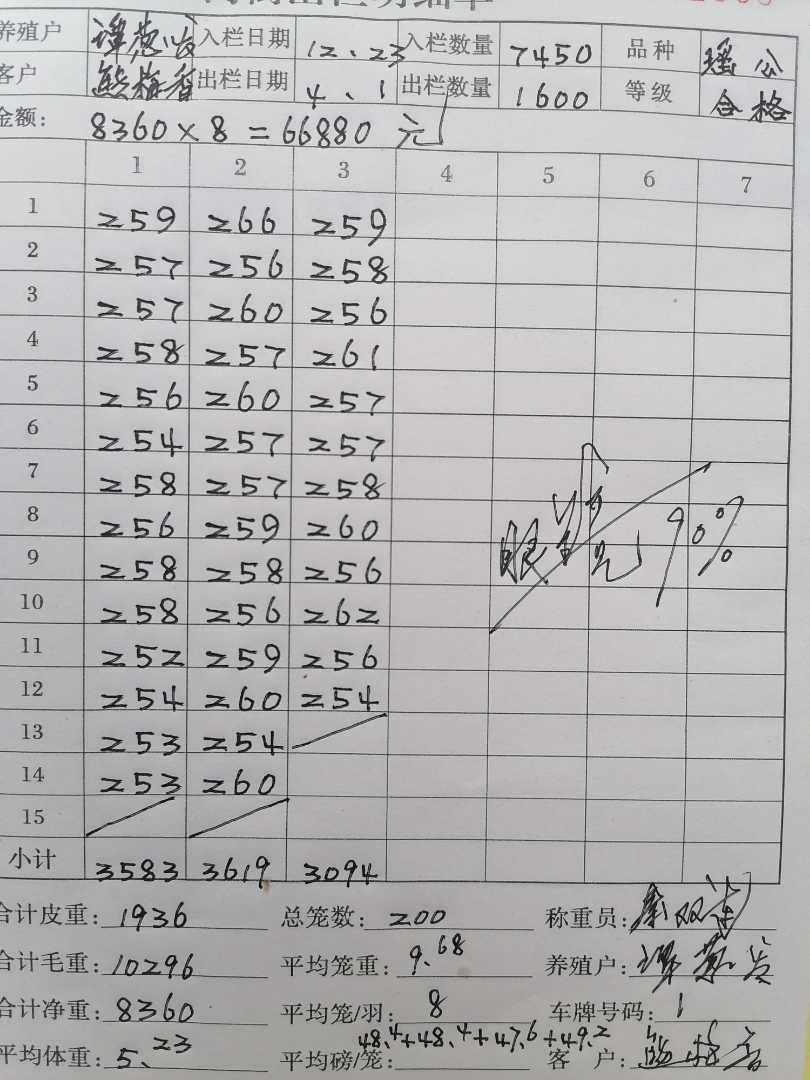 养殖户 入栏日期 12、23 入栏数量 7450 品种 瑶公
客户 熊梅香 出栏日期 4、1 出栏数量 1600 等级 合格
金额: 8360×8=66880元
1 2 3 4 5 6 7
1 259 266 259
2 257 256 258
3 257 260 256
4 258 257 261
5 256 260 257
6 254 257 257
7 258 257 258
8 256 259 260
9 258 258 256
10 258 256 262
11 252 259 256
12 254 260 254
13 253 254
14 253 260
15
小计 3583 3619 3094
眼 90%
合计皮重: 1936 总笼数: 200 称重员:
合计毛重: 10296 平均笼重: 9.68 养殖户:
合计净重: 8360 平均笼/羽: 8 车牌号码: 1
平均体重: 5、23 平均磅/笼: 48.4+48.4+47.6+49.2 客户: